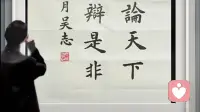 論天下
辯是非
月吳志